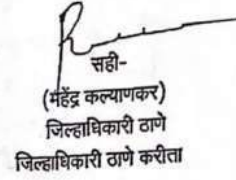 सही-
(महेंद्र कल्याणकर)
जिल्हाधिकारी ठाणे
जिल्हाधिकारी ठाणे करीता